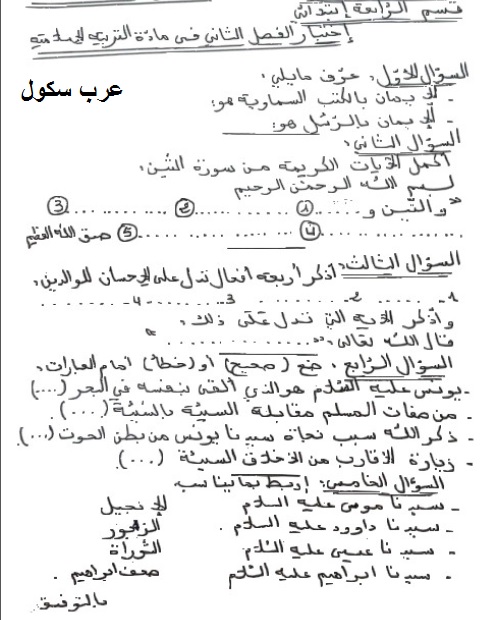 قسم الرابعة إبتدائي
إختبار الفصل الثاني في مادة التربية الإسلامية
عرب سكول
السؤال الأول: عرّف مايلي:
- الإيمان بالكتب السماوية هو:
- الإيمان بالرّسل هو:
السؤال الثاني:
أكمل الآيات الكريمة من سورة التّين:
بسم الله الرحمن الرحيم
"والتّين و...... ① ............ ② ............ ③
............ ④ ............ ⑤ صدق الله العظيم
السؤال الثالث: أذكر أربعة أفعال تدل على الإحسان للوالدين:
1- ........ 2- ........ 3- ........ 4- ........
واذكر الآية التي تدل على ذلك:
قال الله تعالى: "................"
السؤال الرّابع: ضع (صحيح) أو (خطأ) أمام العبارات:
- يونس عليه السّلام هو الذي ألقى بنفسه في البحر (....)
- من صفات المسلم مقابلة السيّئة بالسّيّئة (....)
- ذكر الله سبب نجاة سيدنا يونس من بطن الحوت (....)
- زيارة الأقارب من الأخلاق السيّئة (....)
السؤال الخامس: إربط بما يناسب
- سيدنا موسى عليه السلام الإنجيل
- سيدنا داوود عليه السلام. الزبور
- سيدنا عيسى عليه السّلام التّوراة
- سيدنا ابراهيم عليه السّلام صحف ابراهيم.
بالتوفيق